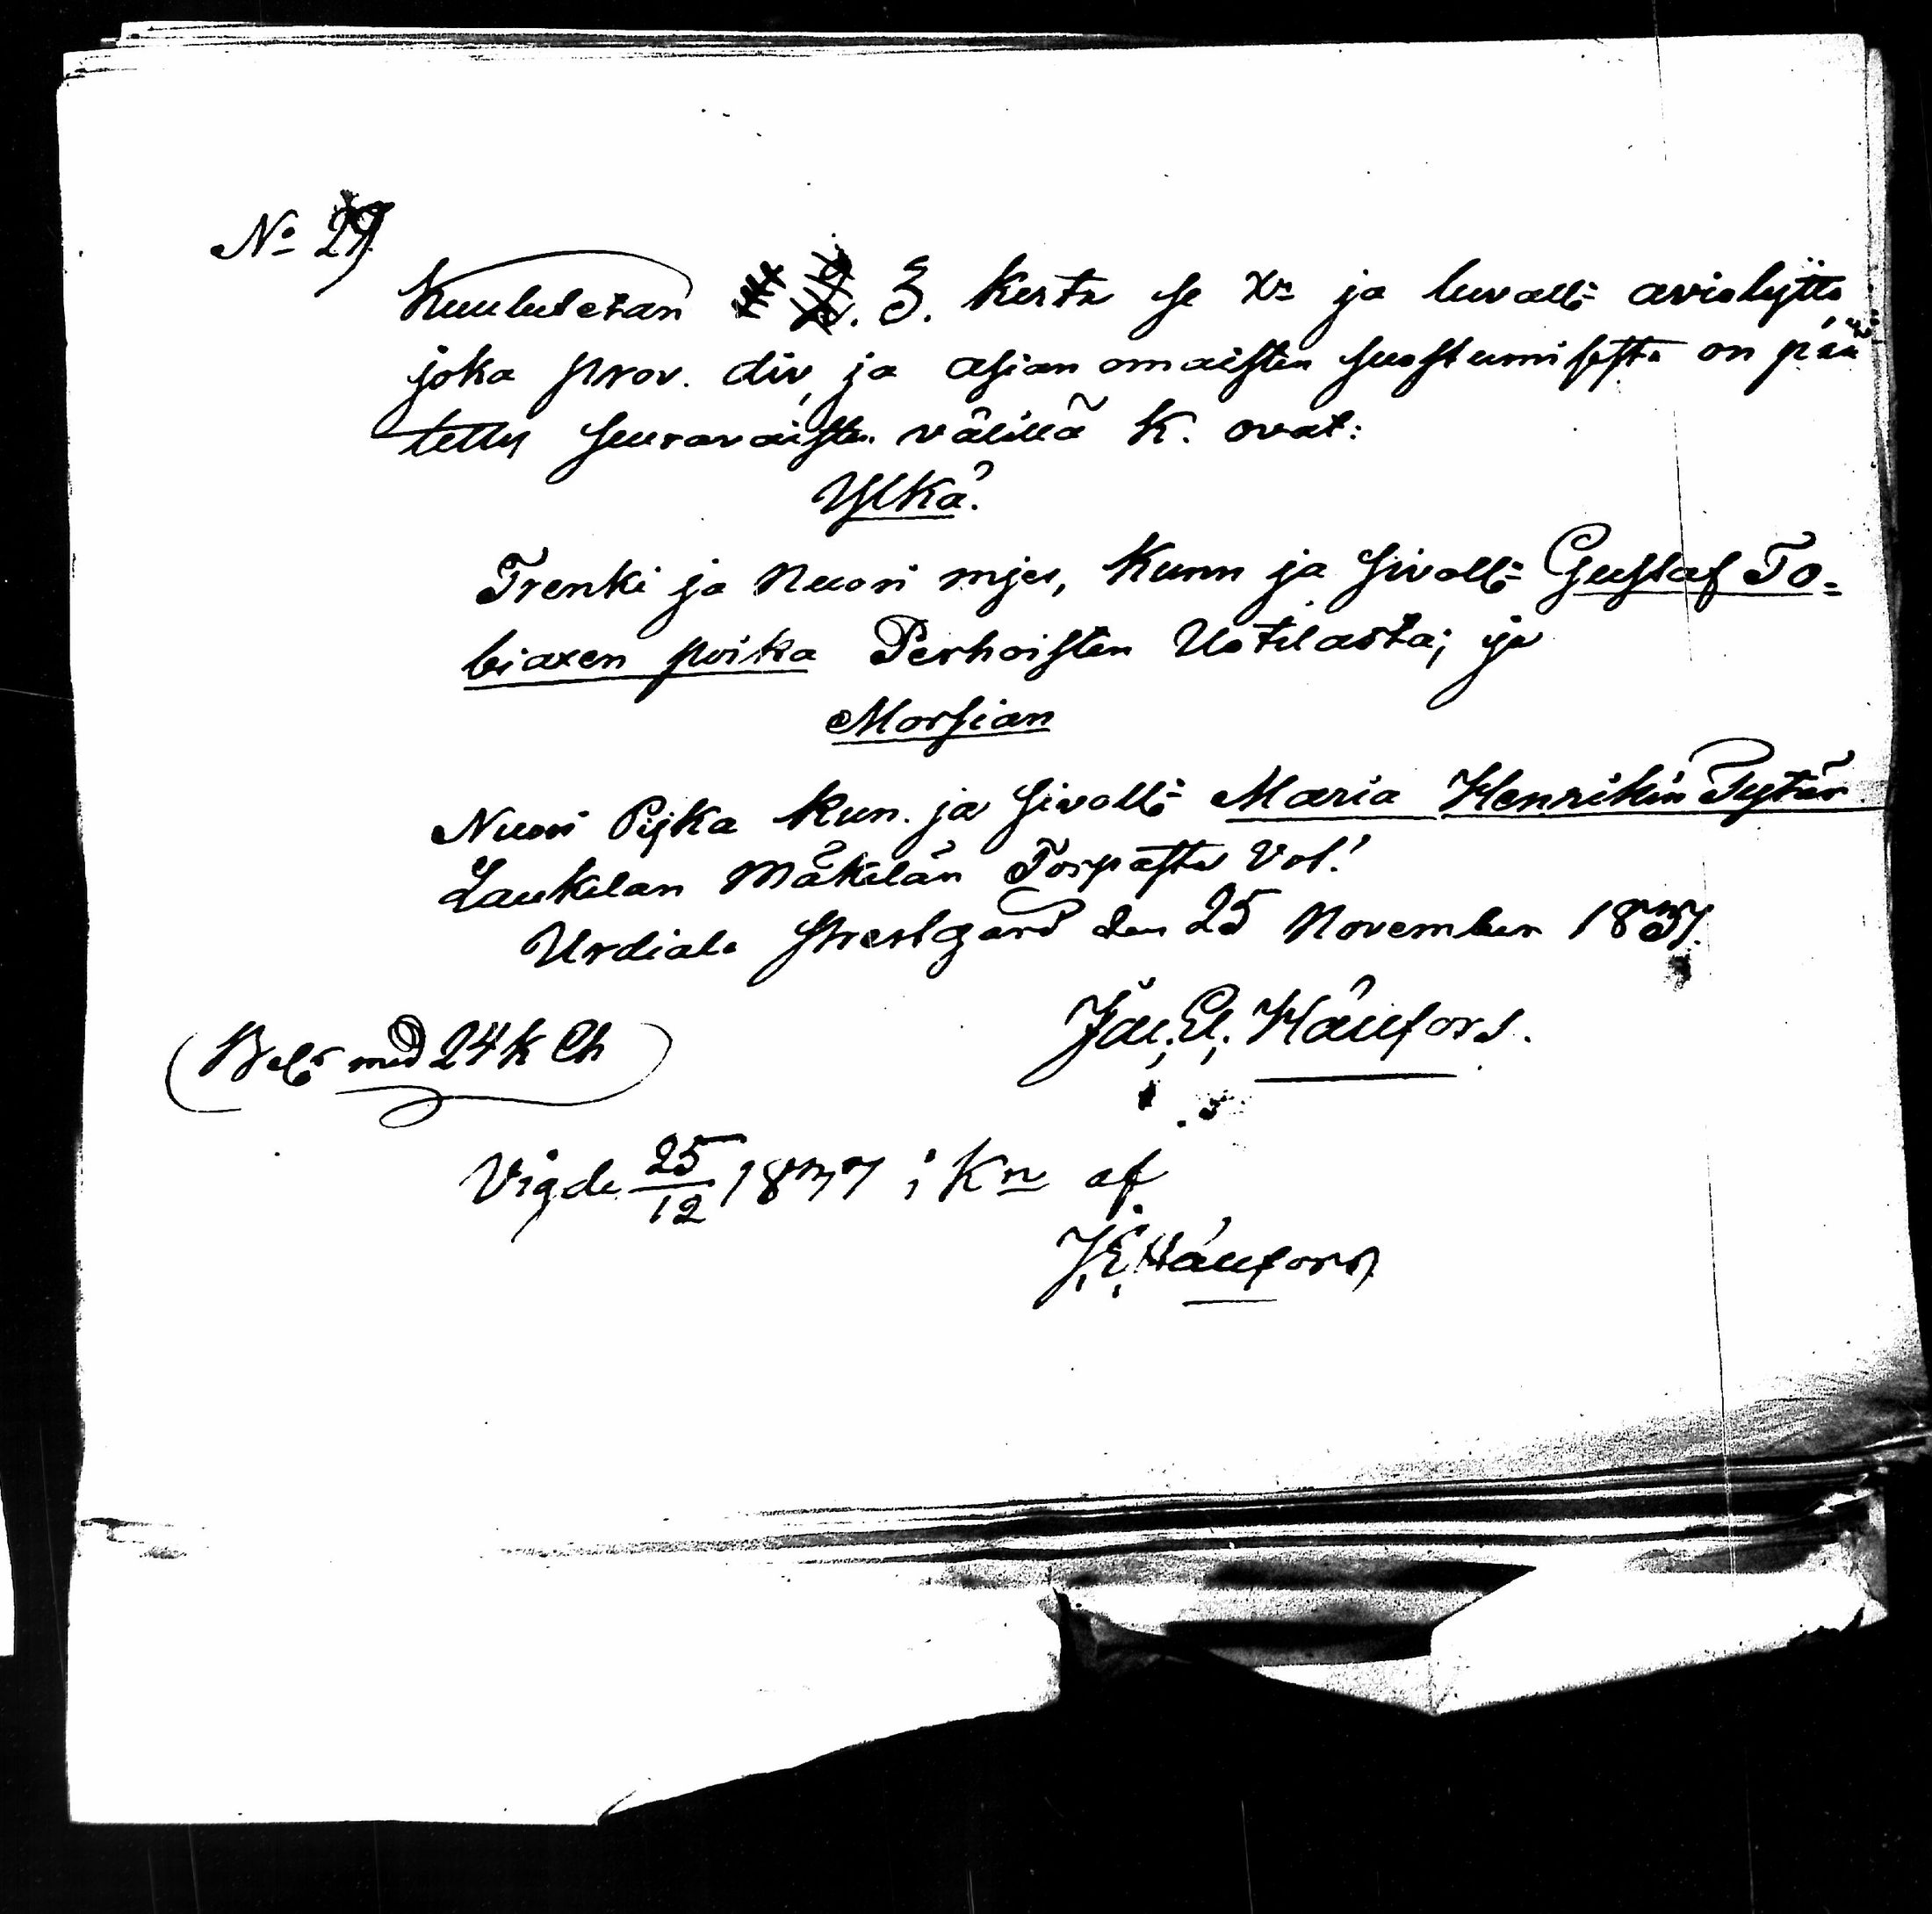 No 27
Kuulutetan 3. kerta se Xn ja luvall: avioliytto,
joka prov. div, ja asian omaisten suostumisesta on pää
tetty seuravaisten välillä K. ovat:
Ylkä.
Trenki ja Nuori mjes, Kunn ja sivoll: Gustaf To-
biaxen poika Perhoisten Uotilasta; ja
Morsian
Nuori Pijka kun. ja sivoll: Maria Henrikin Tytär
Laukelan Mäkelän Torpasta Vol.
Urdiala Prestgård den 25 November 1837.
Jac. E. Häufors.
(Bel: med 24 k Ch)
Vigde 25/12 1837 i Kn af
J. E. Häufors